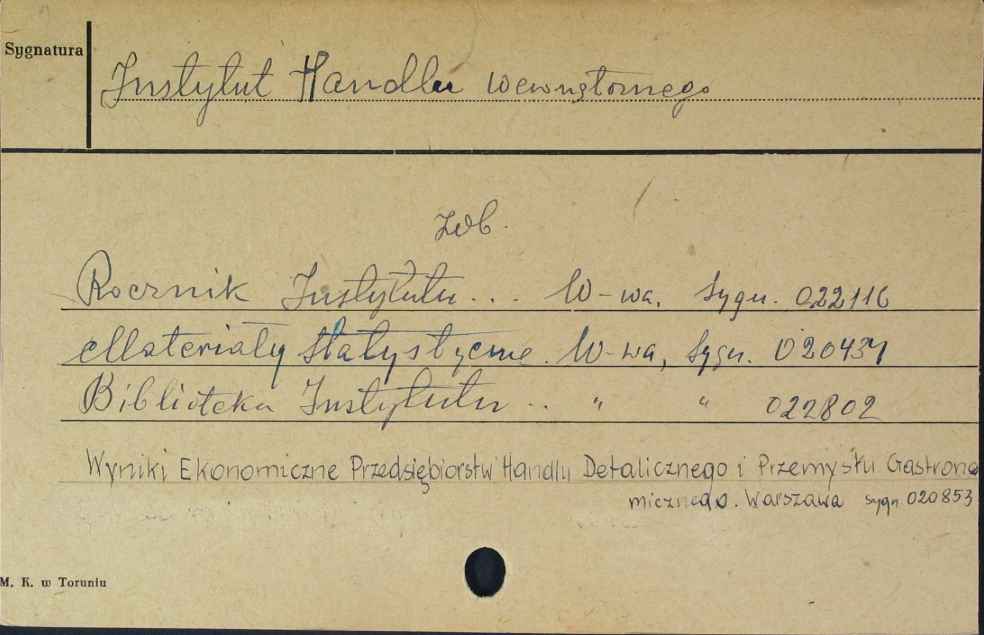 Sygnatura
Instytut Handlu wewnętrznego
zob.
Rocznik Instytutu... W-wa, Sygn. 022116
Materiały Statystyczne. W-wa, Sygn. 020431
Biblioteka Instytutu .. " " 022802
Wyniki Ekonomiczne Przedsiębiorstw Handlu Detalicznego i Przemysłu Gastrono
micznego. Warszawa sygn. 020853
M. K. w Toruniu